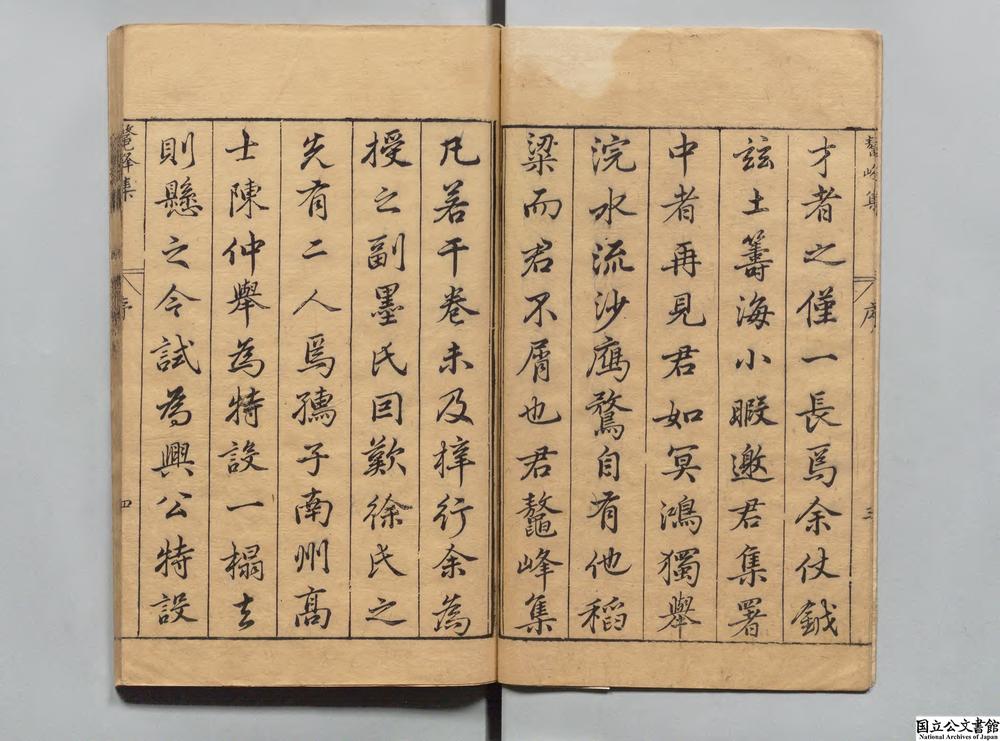 鼇峰集
序
三
才者之僅一長焉余仗鉞
茲土籌海小暇邀君集署
中者再見君如冥鴻獨舉
浣水流沙鴈鶩自有他稻
粱而君不屑也君鼇峰集
凡若干卷未及梓行余為
授之副墨氏因歎徐氏之
先有二人焉孺子南州高
士陳仲舉為特設一榻去
則懸之今試為興公特設
鼇峰集
序
四
国立公文書館
National Archives of Japan